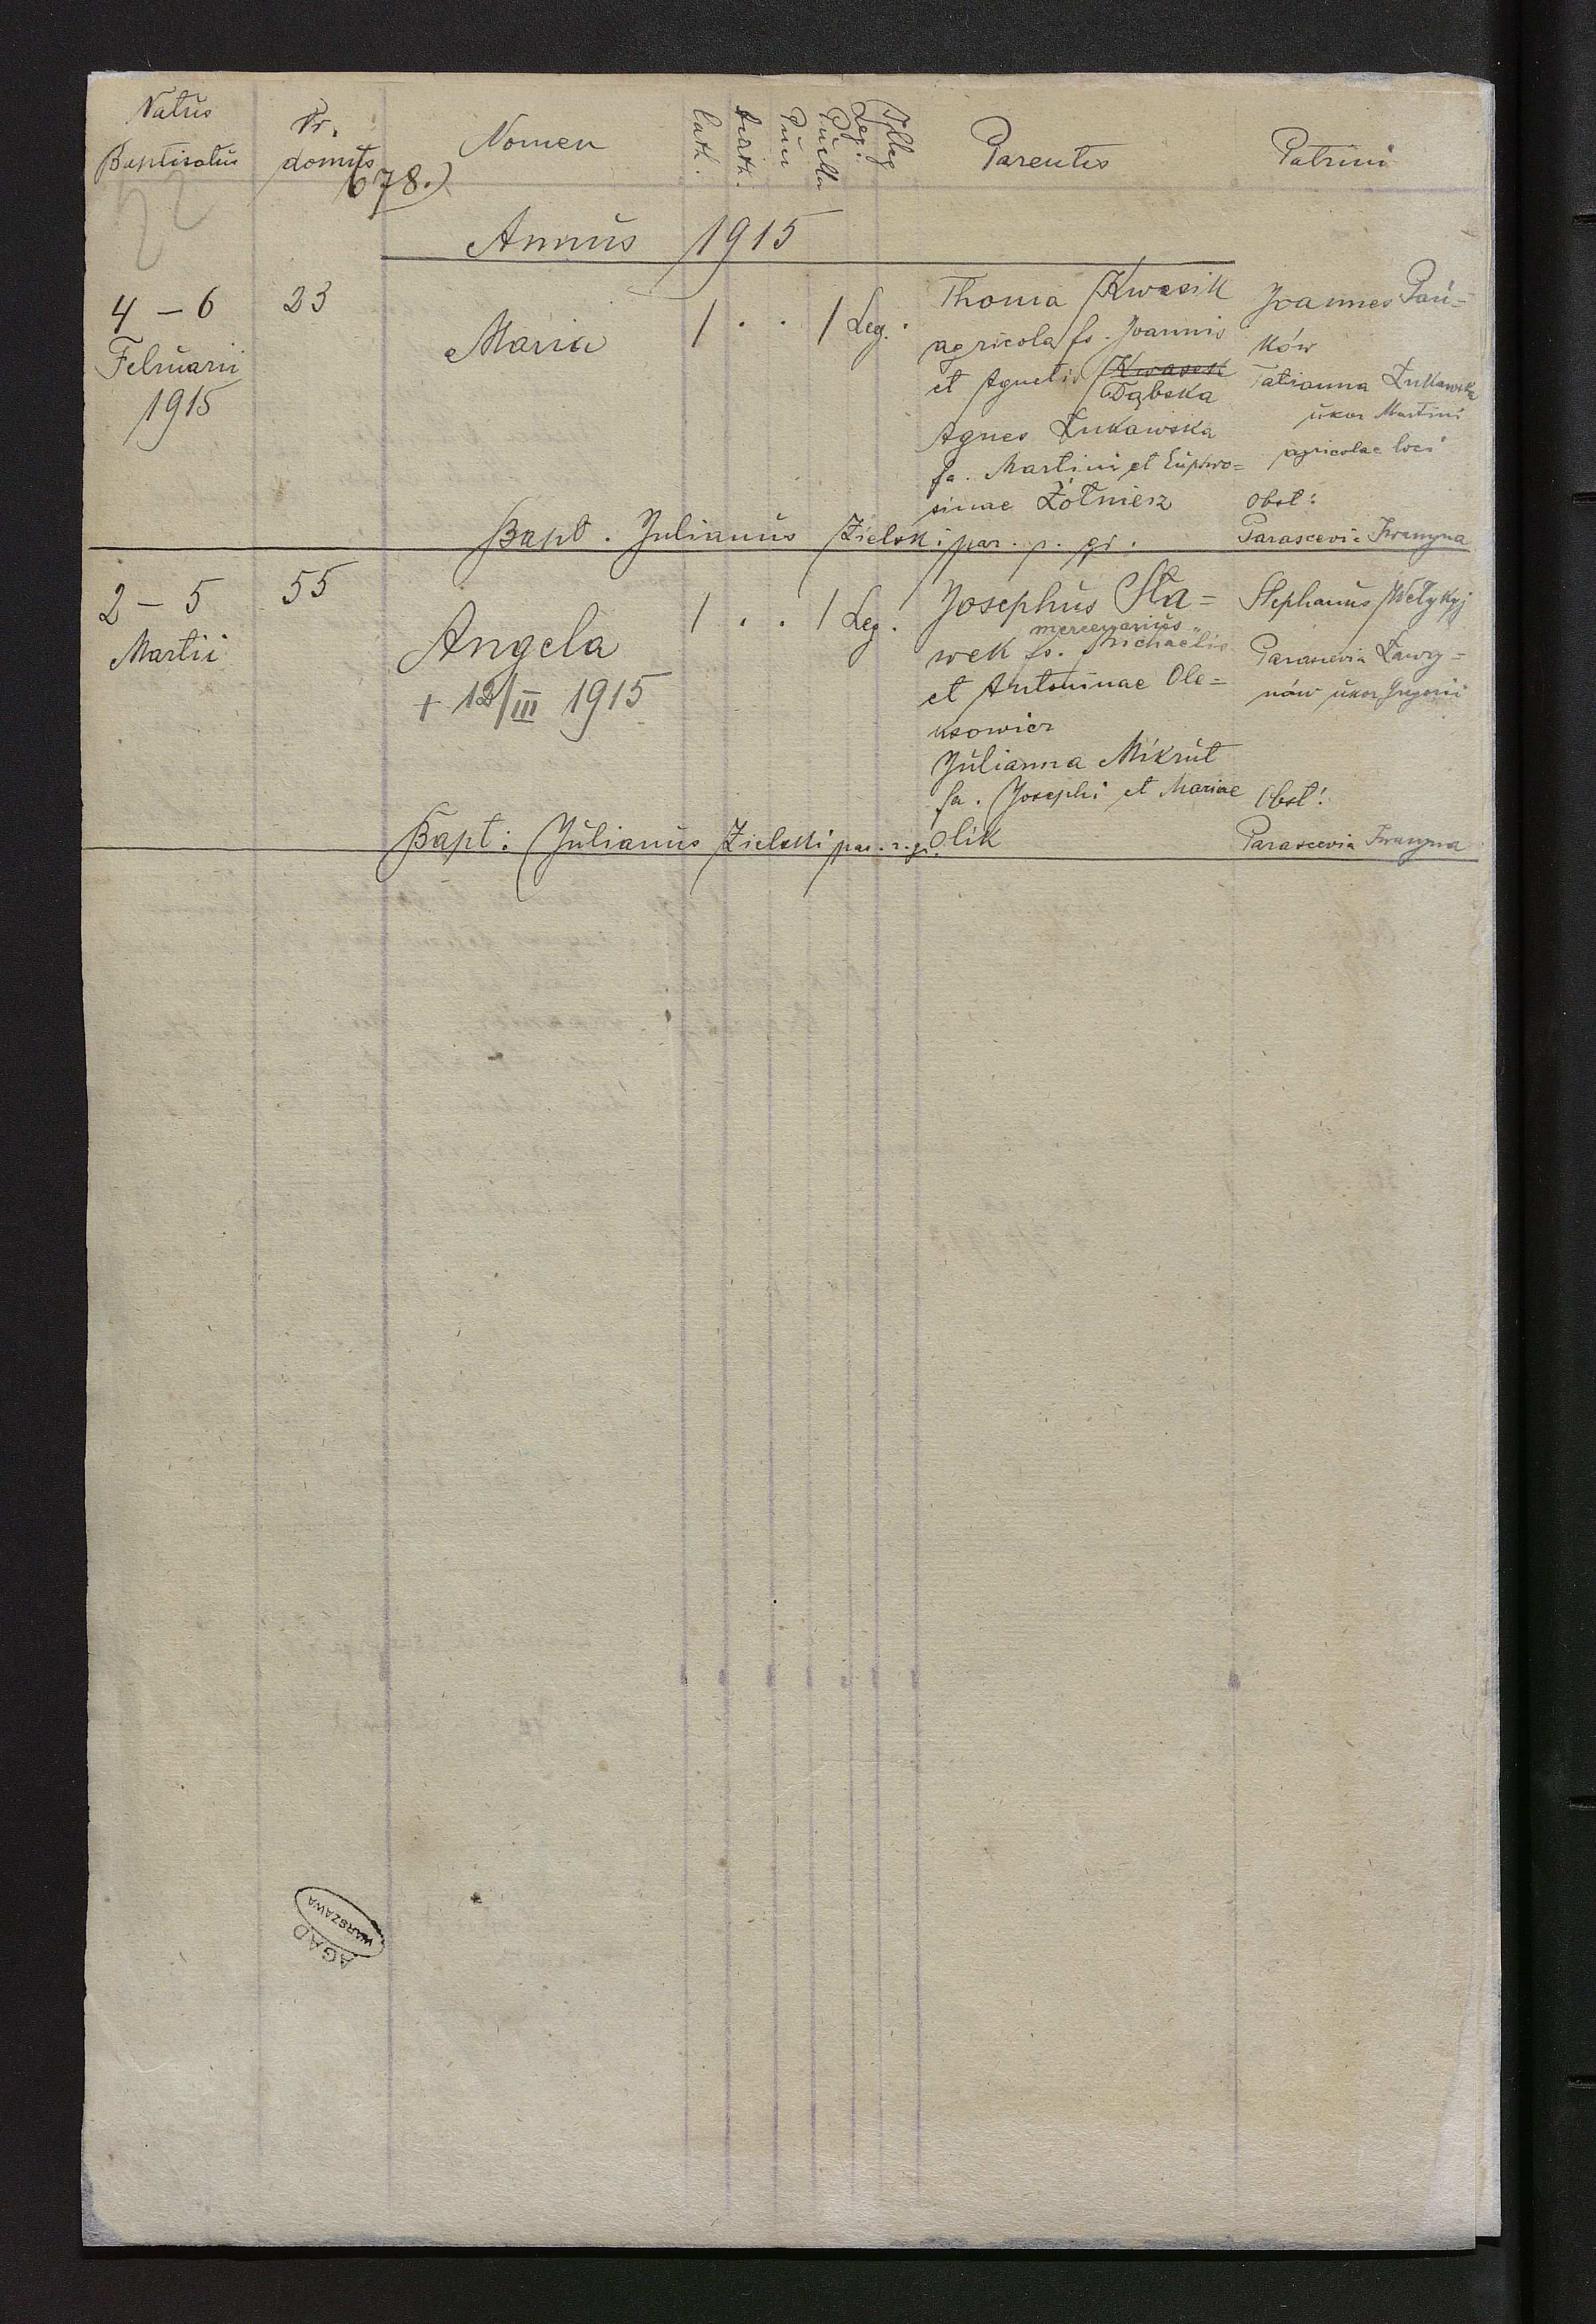 Natus
Baptisatus
Nr.
domus
678.)
Nomen
Cath.
Puer
Puella
Leg.
Illeg
Parentes
Patrini
22
Annus 1915
4 – 6
Februarii
1915
23
Maria
1 . . 1 Leg.
Thoma Kwasik
agricola fs. Joannis
et Agnetis Kwasek
Dąbska
Agnes Łukawska
fa. Martini et Euphro=
sinae Żółnierz
Joannes Pań=
ków
Tatianna Łukawska
uxor Martini
agricolae loci
Obst:
Parascevia Iwanyna
Bapt. Julianus Zielski par. r. gr.
2 – 5
Martii
55
Angela
+ 12/III 1915
1 . . 1 Leg.
Josephus Sła=
mercenarius
wek fs. Michaelis
et Antoninae Ole=
ksowicz
Julianna Mikrut
fa. Josephi et Mariae
Olik
Stephanus Wełykyj
Parascevia Ławry=
nów uxor Gregorii
Obst:
Parascevia Iwanyna
Bapt: Julianus Zielski par. r. gr.
AGAD
WARSZAWA